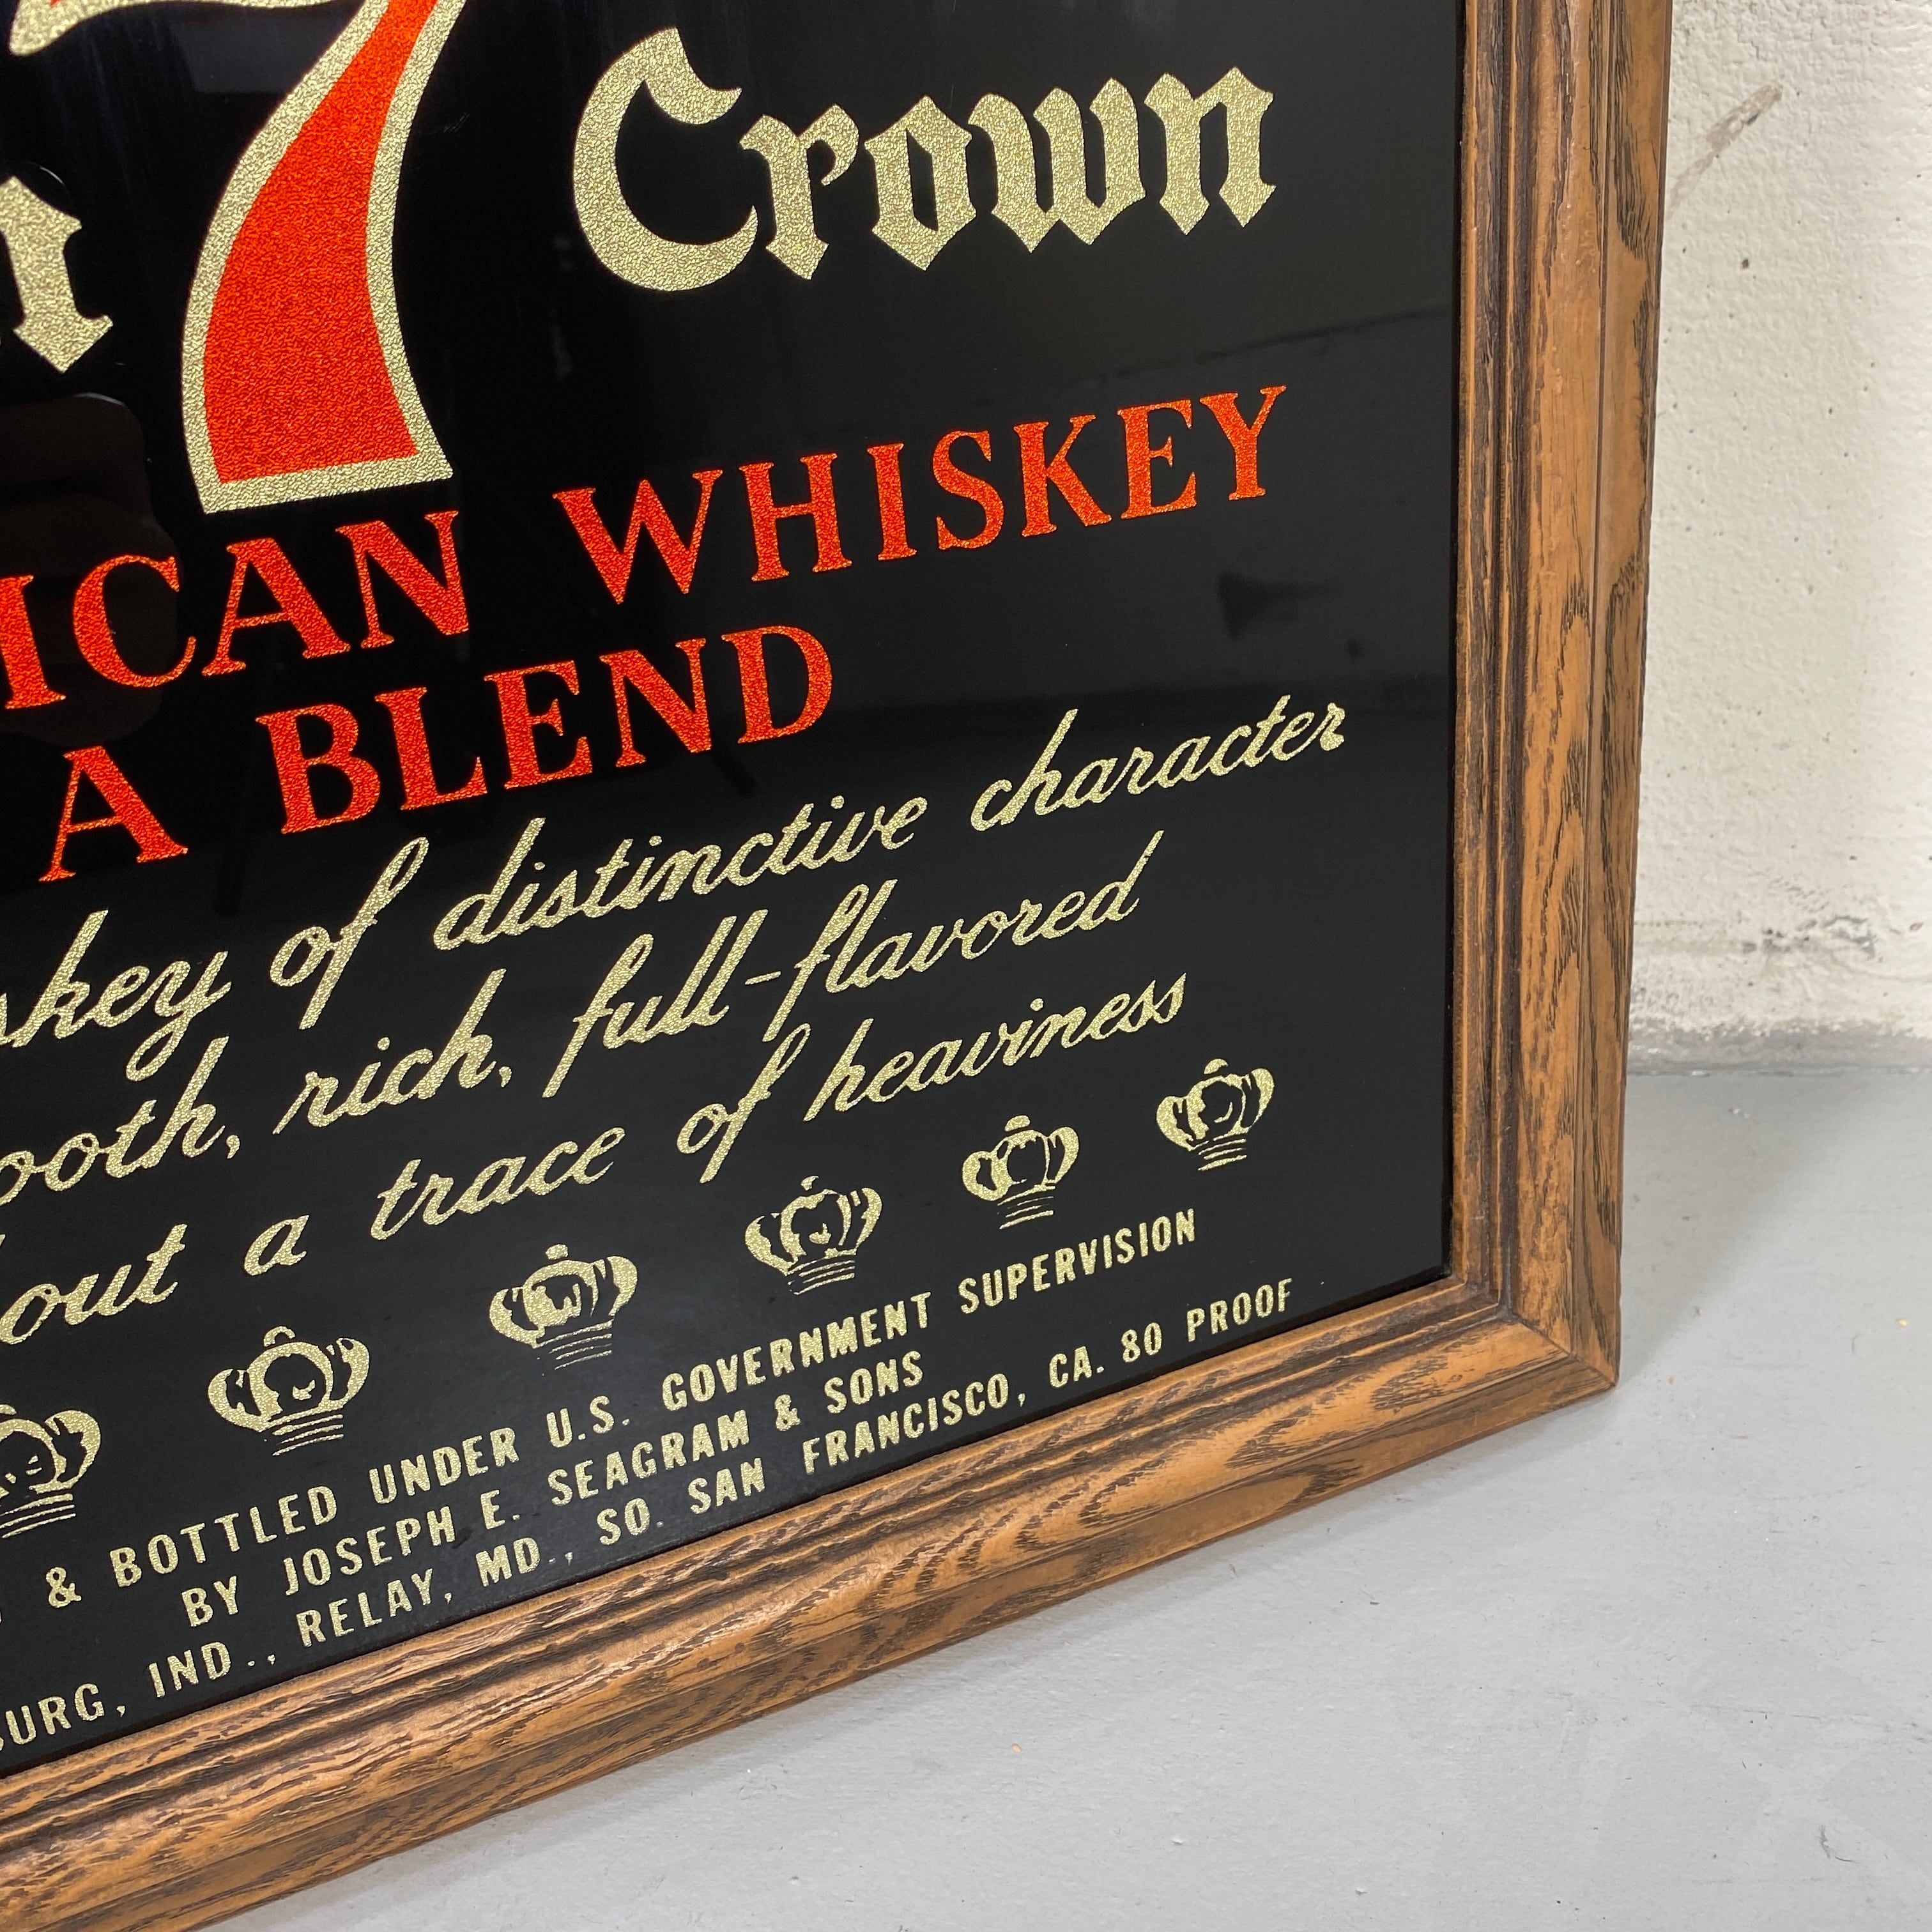 7 Crown
ICAN WHISKEY
A BLEND
skey of distinctive character
ooth, rich, full-flavored
out a trace of heaviness
& BOTTLED UNDER U.S. GOVERNMENT SUPERVISION
BY JOSEPH E. SEAGRAM & SONS
BURG, IND., RELAY, MD., SO. SAN FRANCISCO, CA. 80 PROOF